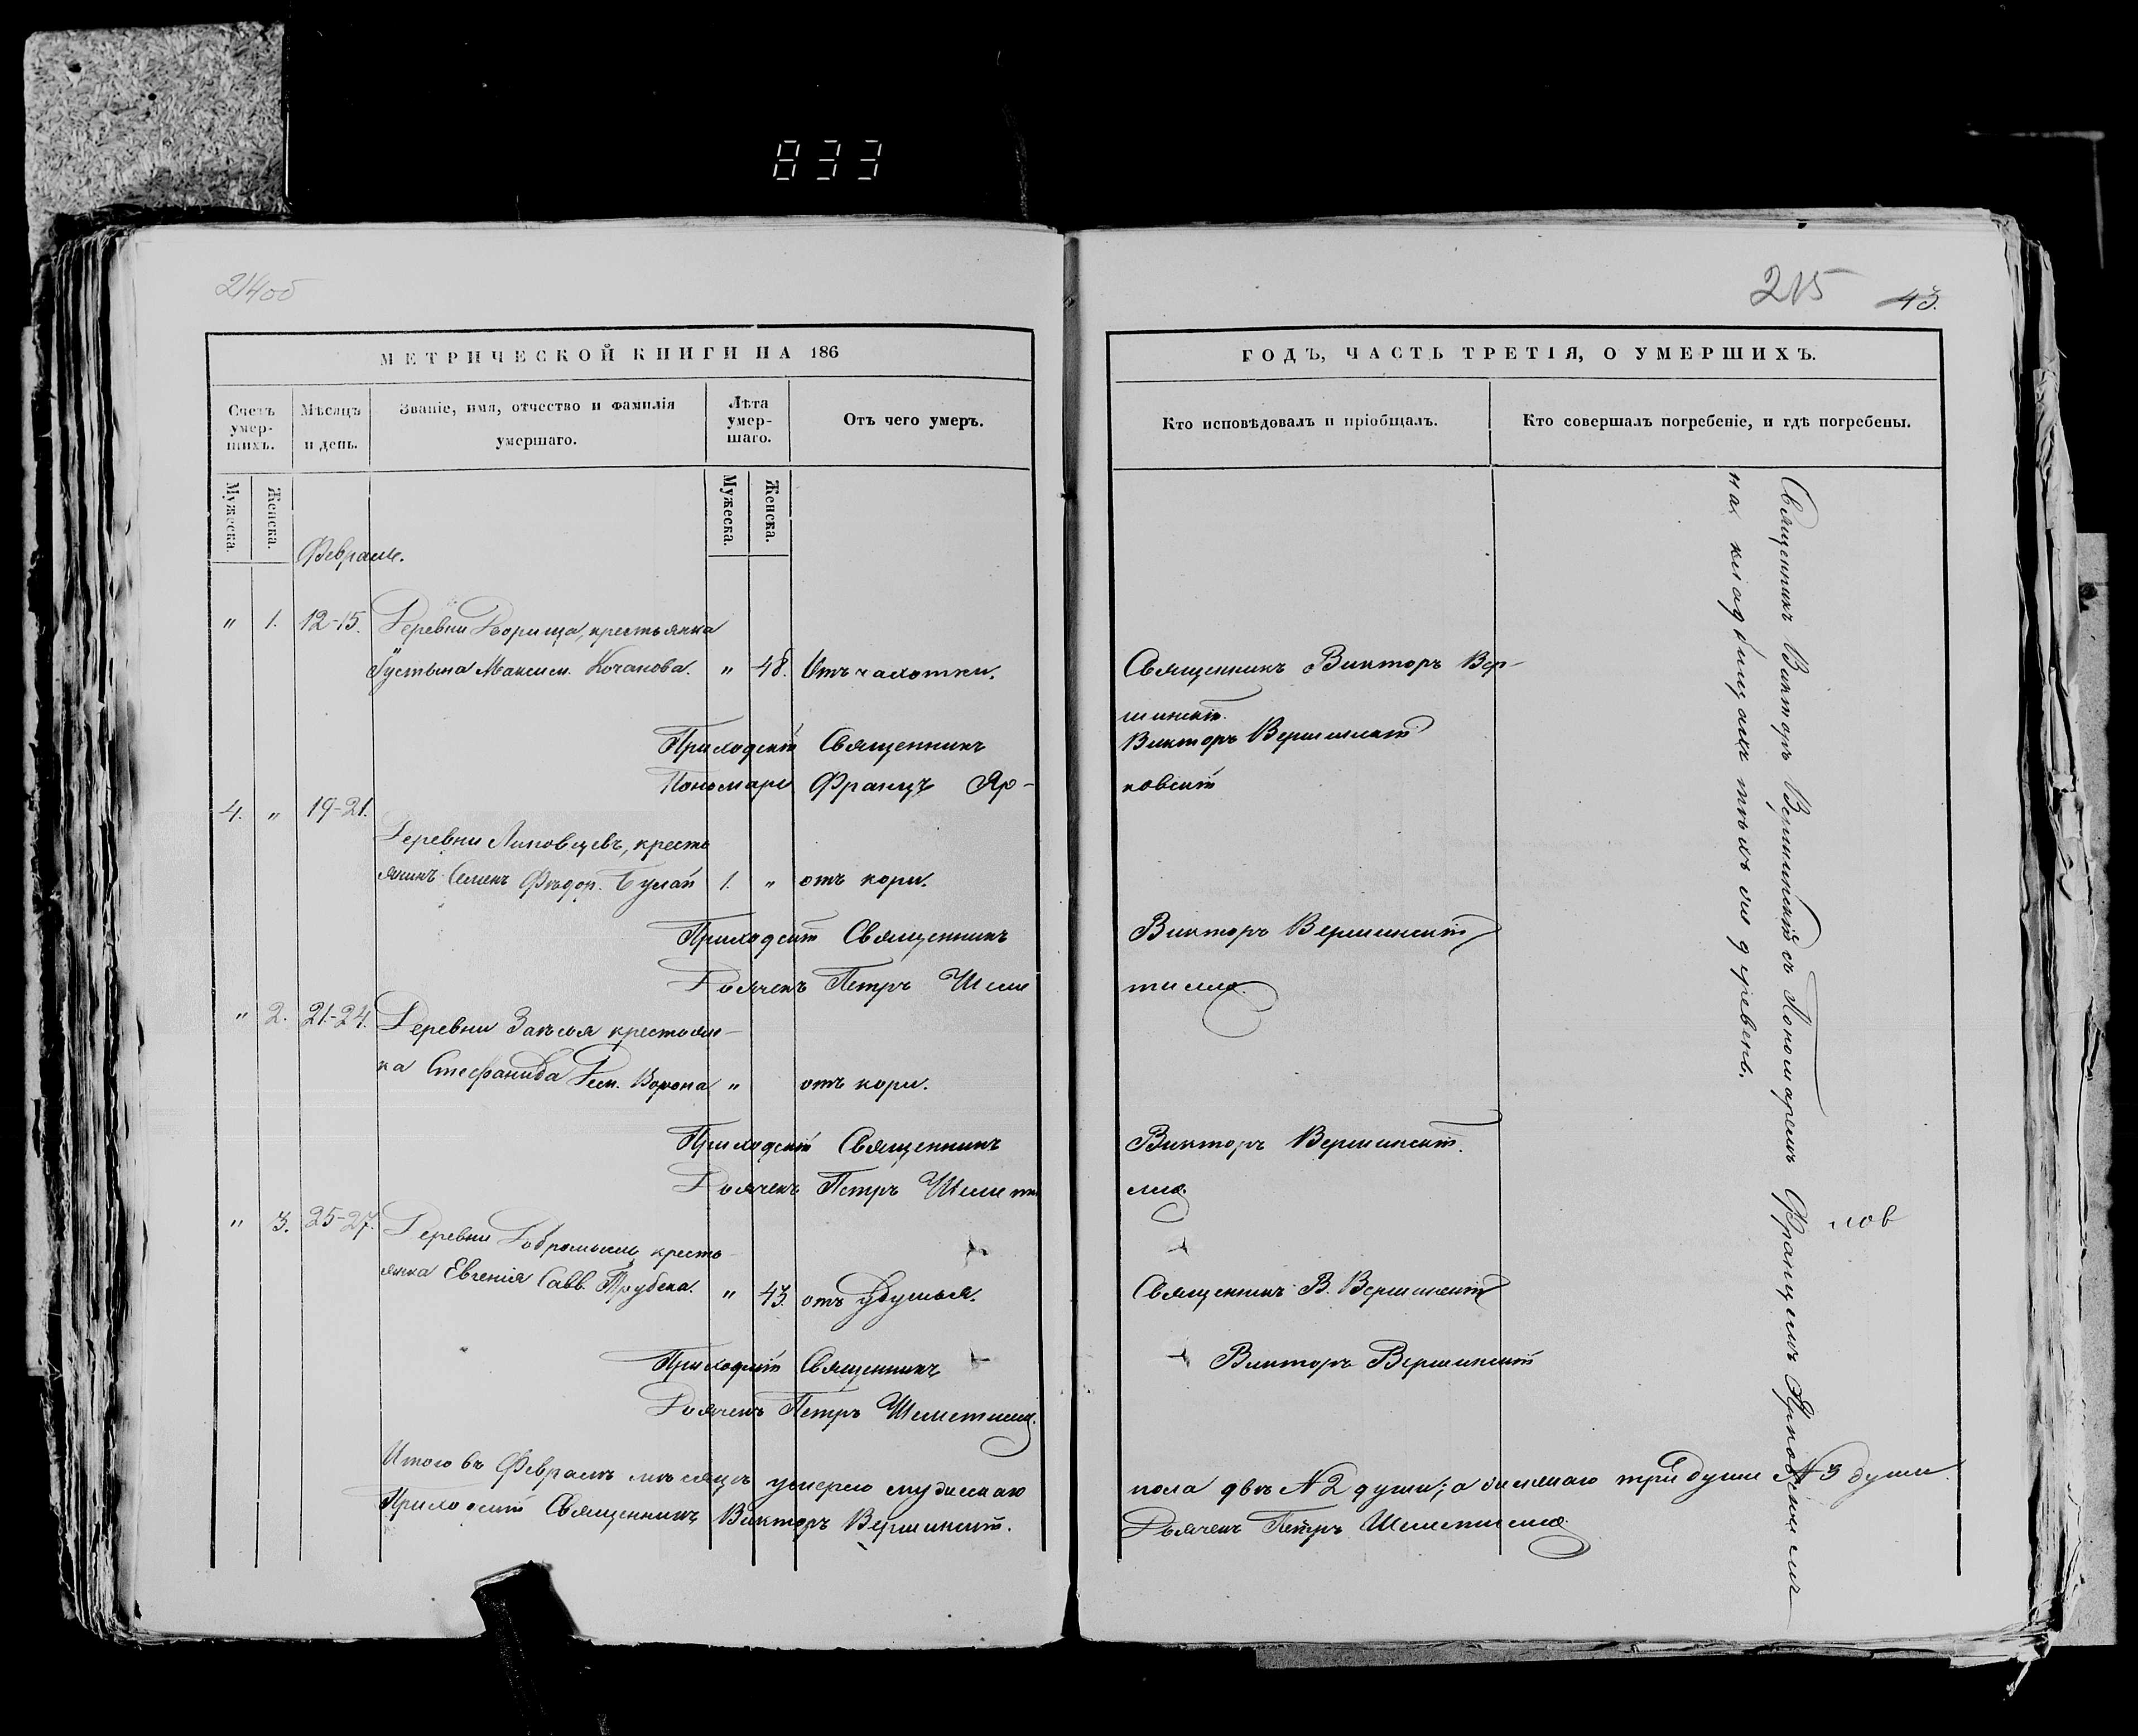 833
214об
МЕТРИЧЕСКОЙ КНИГИ НА 186
Счетъ умер-шихъ.
Мѣсяцъ и день.
Званіе, имя, отчество и фамилія умершаго.
Лѣта умер-шаго.
Отъ чего умеръ.
Мужеска.
Женска.
Мужеска.
Женска.
Февраль.
" 1. 12-15. Деревни Дворища, крестьянка
Іустына Максим. Кочанова. " 48. Отъ чахотки.
Приходскій Священникъ
Пономарь Францъ Яр-
4. " 19-21.
Деревни Липовцевъ, кресть
янинъ Семенъ Ѳедор. Булай 1. " отъ кори.
Приходскій Священникъ
Дьячекъ Петръ Шеме
" 2. 21-24. Деревни Заполья крестьян-
ка Стефанида Дем. Ворона " отъ кори.
Приходскій Священникъ
Дьячекъ Петръ Шемет
" 3. 25-27. Деревни Добромысль кресть
янка Евгенія Савв. Трубска. " 43. отъ удушья.
Приходскій Священникъ
Дьячекъ Петръ Шеметилло.
Итого въ Февралѣ мѣсяцѣ умерло мужескаго
Приходскій Священникъ Викторъ Вершинскій.
215 43.
ГОДЪ, ЧАСТЬ ТРЕТІЯ, О УМЕРШИХЪ.
Кто исповѣдовалъ и пріобщалъ.
Кто совершалъ погребеніе, и гдѣ погребены.
Священникъ Викторъ Вер-
шинскій.
Викторъ Вершинскій
ковскій
Викторъ Вершинскій
тилло.
Викторъ Вершинскій.
илло.
Священникъ В. Вершинскій
Викторъ Вершинскій
пола двѣ № 2 души; а женскаго три души № 3 души.
Дьячекъ Петръ Шеметилло.
Священникъ Викторъ Вершинскій съ Пономаремъ Францемъ Ярковскимъ
на кладбищахъ тѣхъ же деревень.